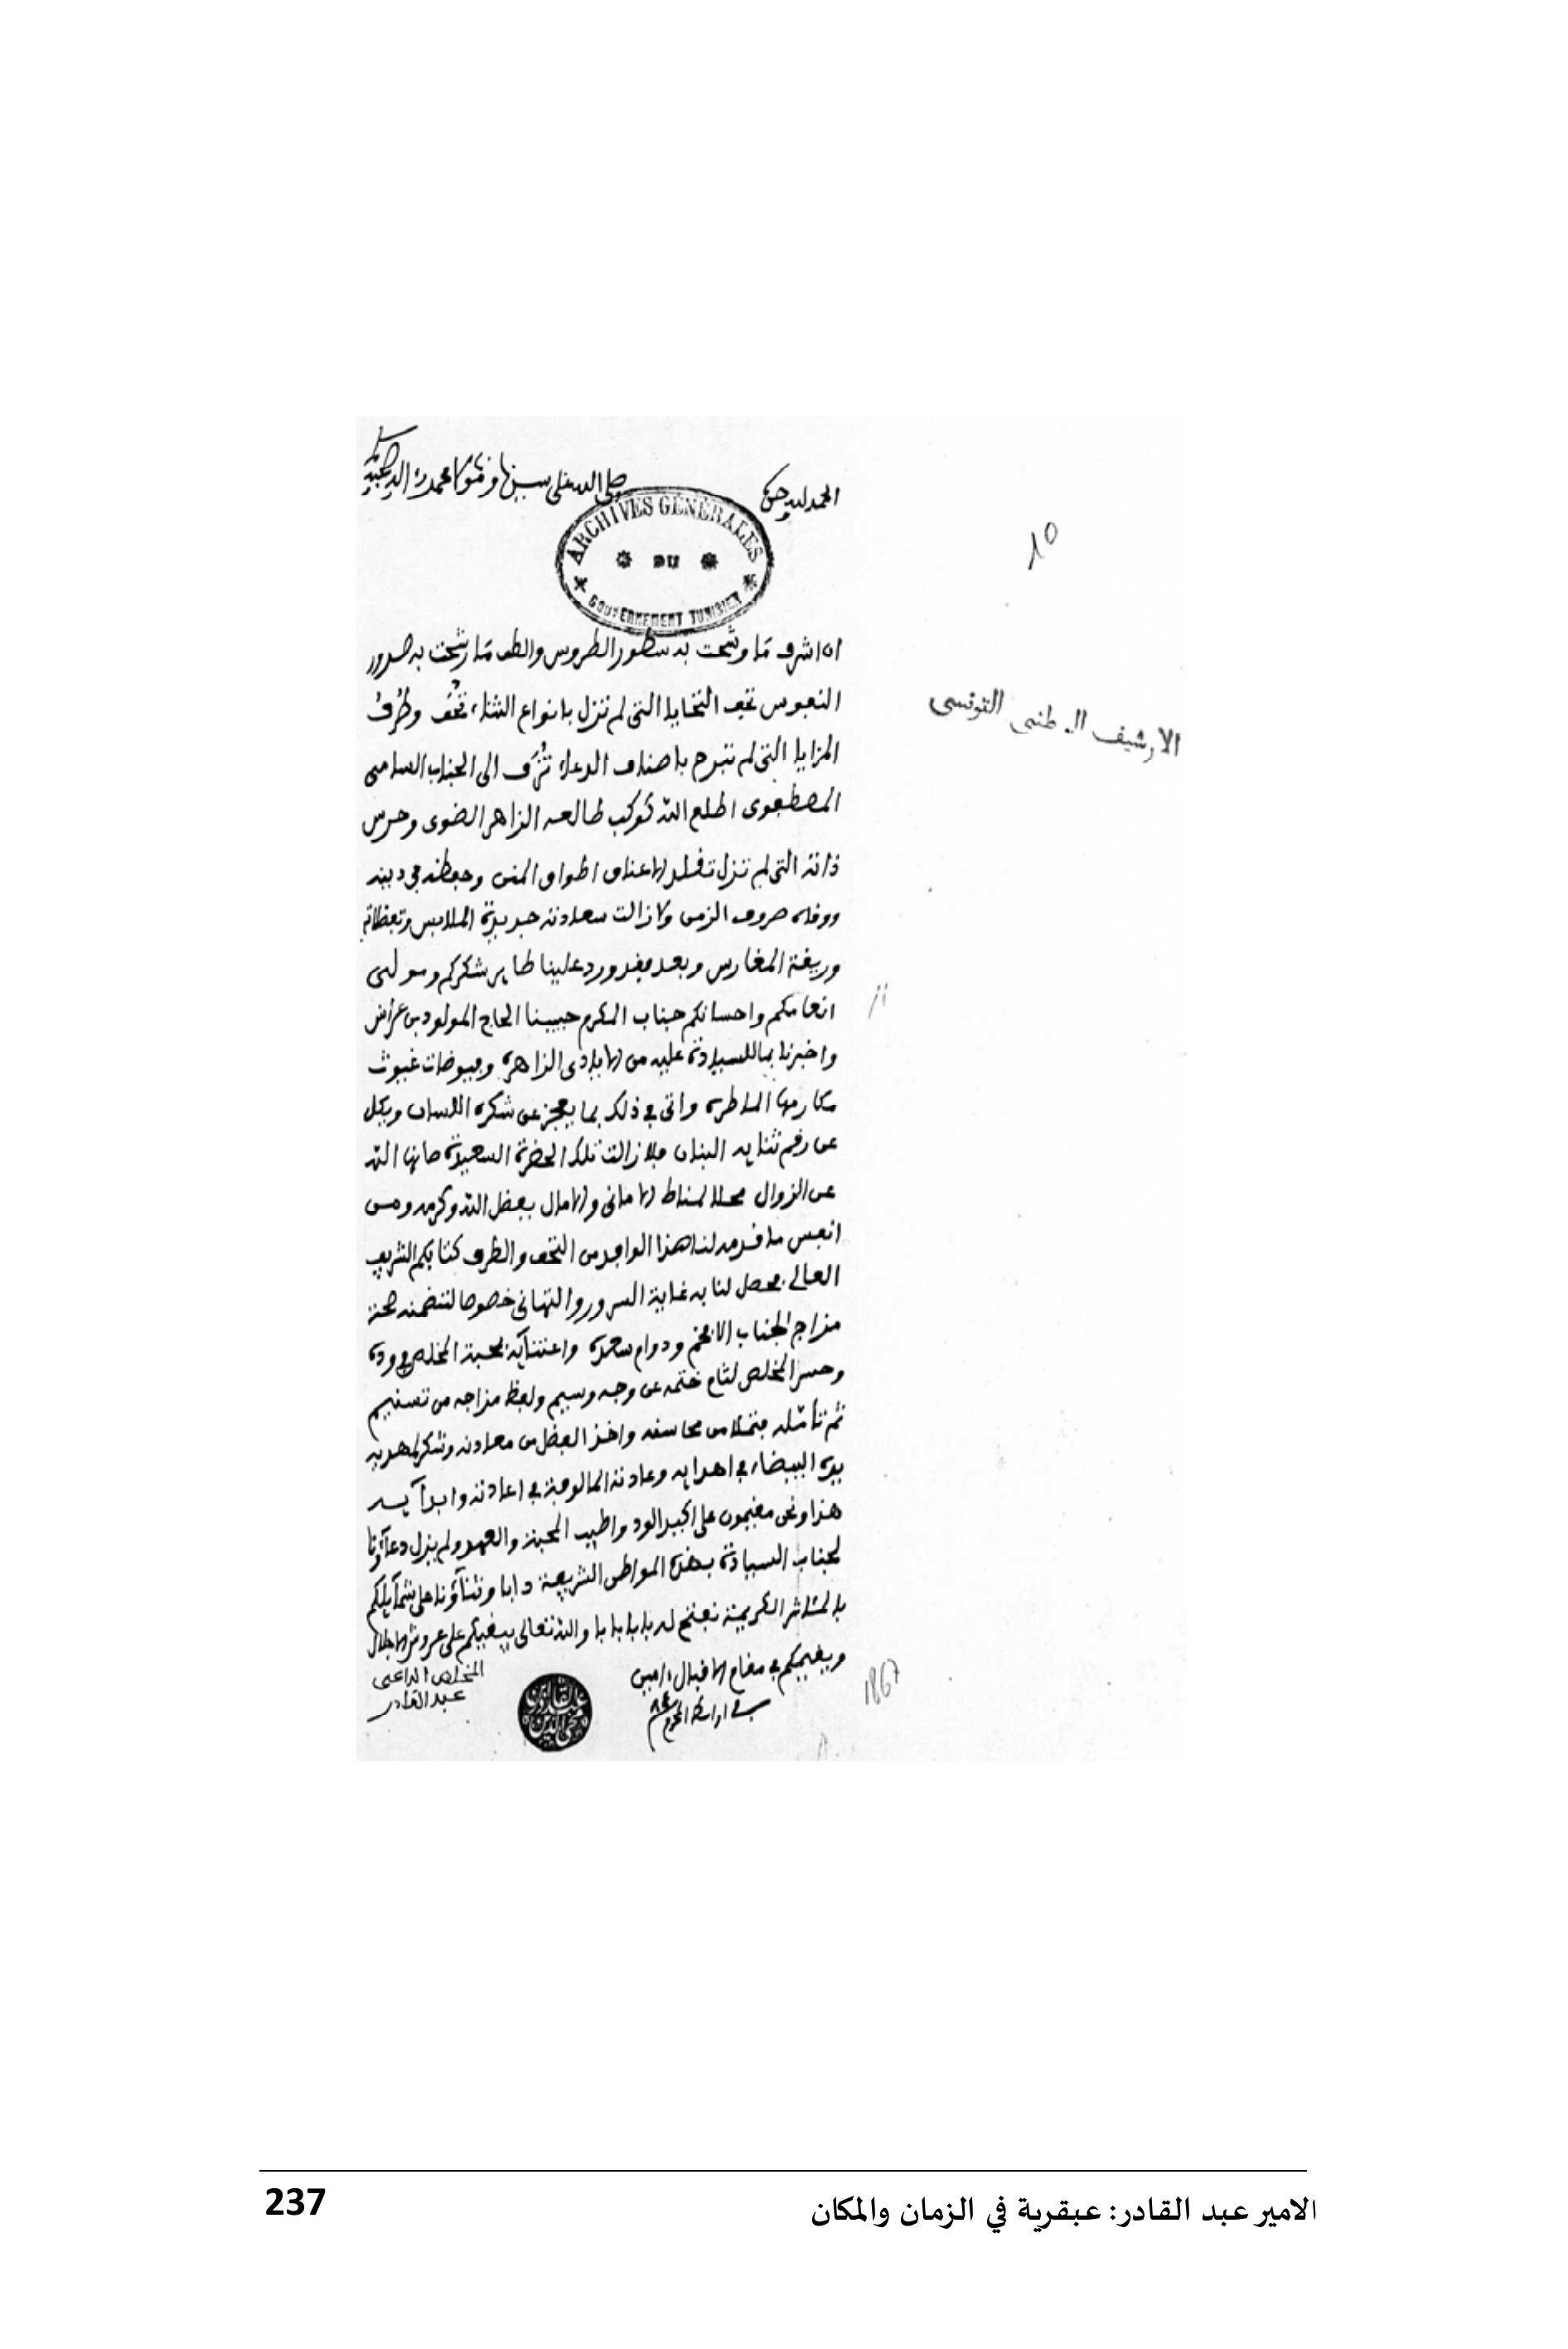 الحمد لله وحده
صلى الله على سيدنا ومولانا محمد وآله وصحبه وسلم
ARCHIVES GENERALES
DU
GOUVERNEMENT TUNISIEN
10
الارشيف الوطني التونسي
ان اشرف ما وشحت به سطور الطروس والطف ما رشحت به صدور
النفوس تحف التحايا التي لم تزل بانواع الثناء تتحف وطرف
المزايا التي لم تبرح باصناف الدعاء تزف الى الجناب السامي
المصطفوي اطلع الله كوكب طالعه الزاهر الضوي وحرس
ذاته التي لم تزل تقلد الاعناق اطواق المنن وحفظه في دينه
ووقاه صروف الزمن ولا زالت سعادته جديدة الملابس
وريقة المغارس وبعد فقد ورد علينا طاير شكركم ومولى
انعامكم واحسانكم جناب المكرم حبيبنا الحاج المولود بن عراش
واخبرنا بما للسيادة عليه من الايادي الزاهرة وفيوضات غيوث
مكارمها الماطرة واتى في ذلك بما يعجز عن شكره اللسان ويكل
عن رقم ثنايه البنان فلا زالت تلك الحضرة السعيدة صانها الله
عن الزوال محلا لمناط الاماني والامال بفضل الله وكرمه ومن
انفس ما قدمه لنا هذا الوافد من التحف والطرف كتابكم الشريف
العالي فحصل لنا به غاية السرور والتهاني خصوصا لتضمنه صحة
مزاج الجناب الافخم ودوام سعده واعتنآيه بمحبة المخلص ووده
وحسر المخلص لثام ختمه عن وجه وسيم ولفظ مزاجه من تسنيم
ثم تأمله فتملا من محاسنه واخذ الفضل من معادنه وشكر لمهديه
يده البيضاء في اهدايه وعادته المالوفة في اعادته وابدآيه
هذا ونحن مقيمون على اكيد الود واطيب المحبة والعهد ولم يزل دعآؤنا
لجناب السيادة بهذه المواطن الشريفة دابا وثنآؤنا على شمآيلكم
بالمئاثر الكريمة نفتح له بابا بابا والله تعالى يبقيكم على عروش الاجلال
ويقيمكم في مقام الاقبال امين
في اواسط المحرم ٨٤
المخلص الداعي
عبد القادر
1867
الامير عبد القادر: عبقرية في الزمان والمكان
237